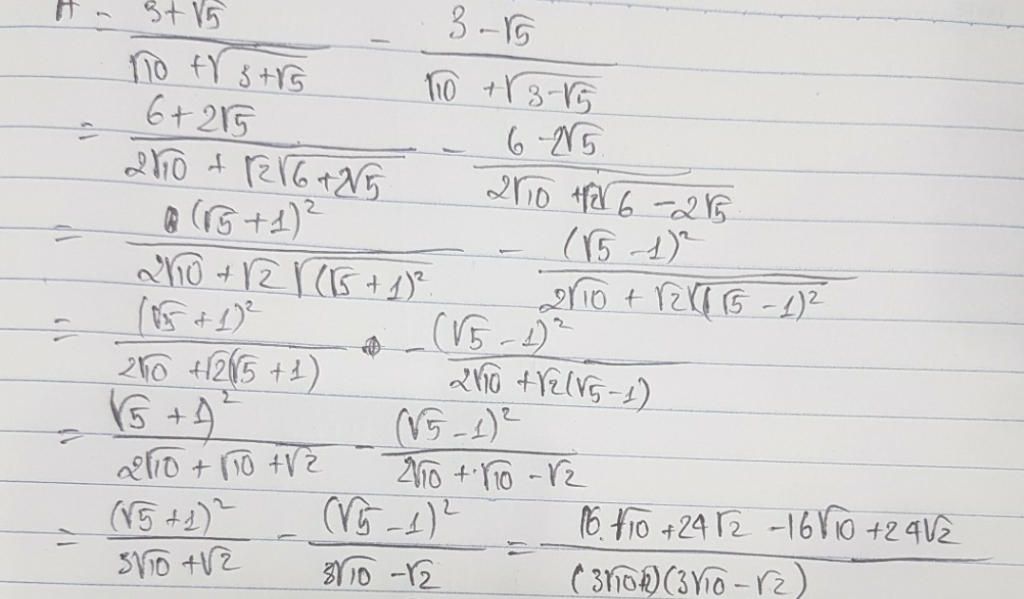 A = (3+√5)/(√10 + √(3+√5)) - (3-√5)/(√10 + √(3-√5))
= (6+2√5)/(2√10 + √2√(6+2√5)) - (6-2√5)/(2√10 + √2√(6-2√5))
= (√5+1)²/(2√10 + √2√((√5+1)²)) - (√5-1)²/(2√10 + √2√((√5-1)²))
= (√5+1)²/(2√10 + √2(√5+1)) - (√5-1)²/(2√10 + √2(√5-1))
= (√5+1)²/(2√10 + √10 + √2) - (√5-1)²/(2√10 + √10 - √2)
= (√5+1)²/(3√10 + √2) - (√5-1)²/(3√10 - √2) = (16√10 + 24√2 - 16√10 + 24√2)/((3√10+√2)(3√10-√2))